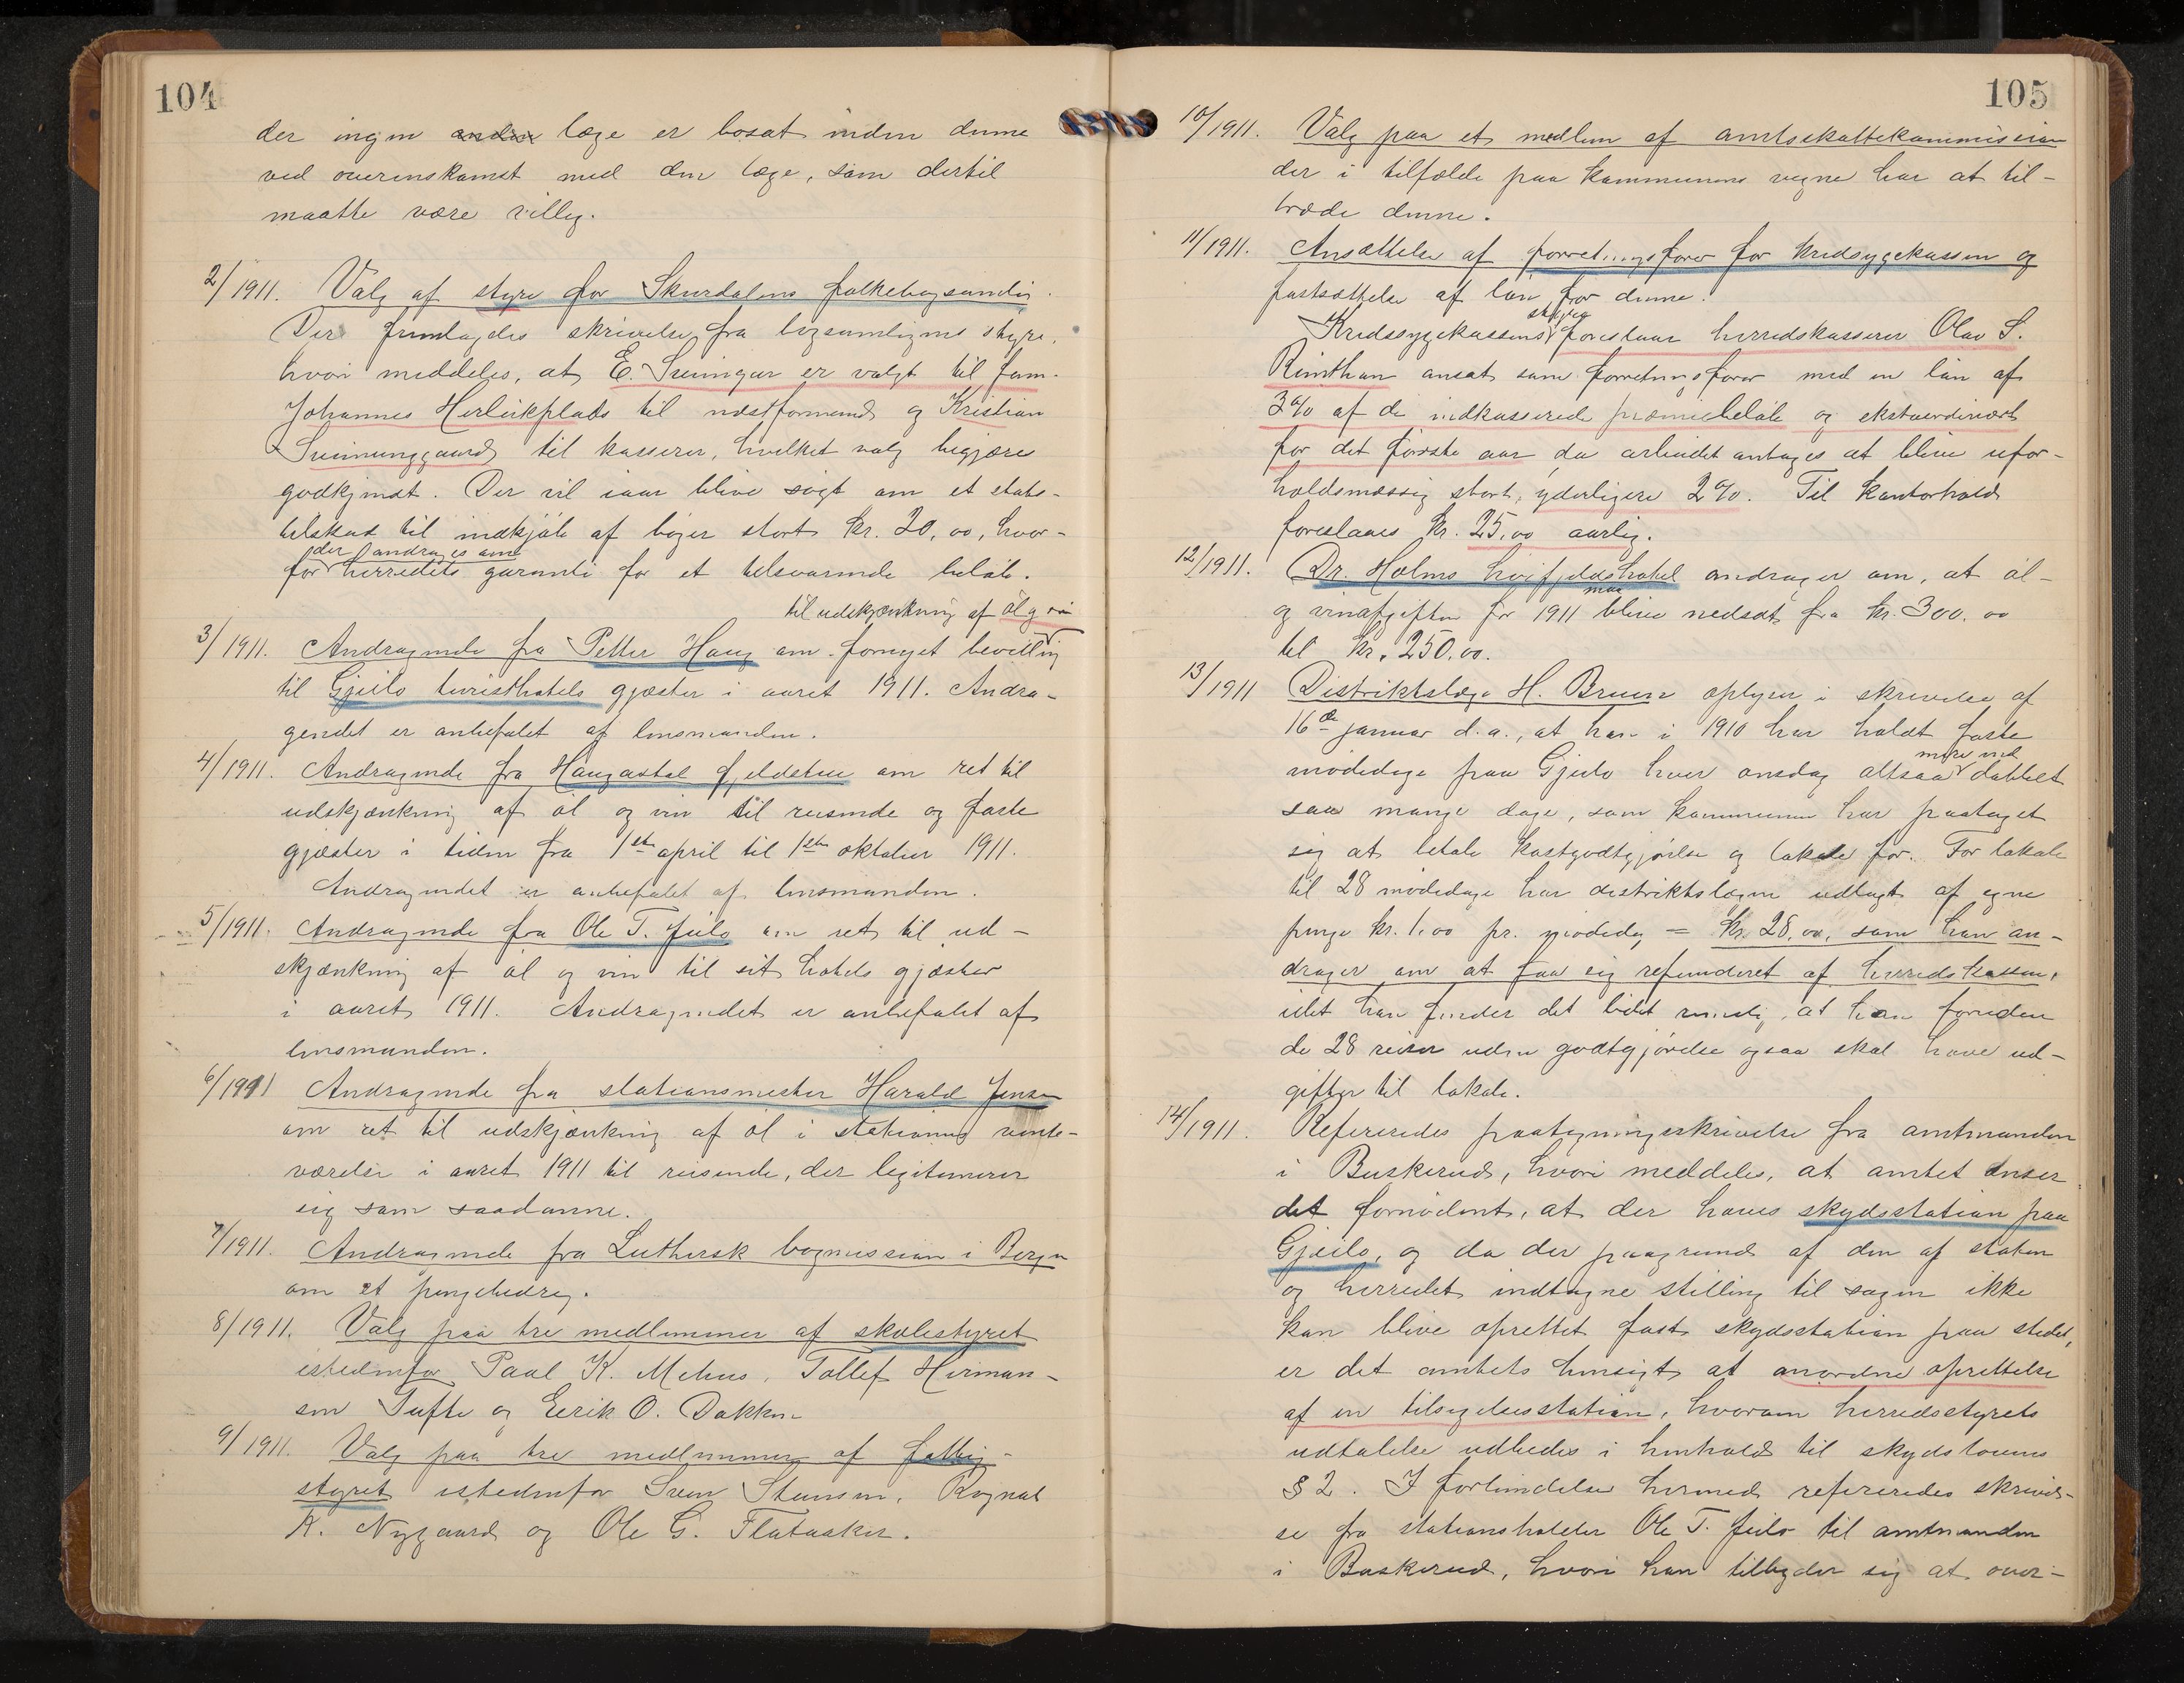 104
der ingen anden læge er bosat inden denne
ved overenskomst med den læge, som dertil
maatte være villig.
2/1911. Valg af styre for Skurdalens folkebogsamling.
Der fremlagdes skrivelse fra bogsamlingens styre,
hvori meddeles, at E. Sreingar er valgt til form.
Johannes Herleikplads til næstformand og Kristian
Sveinunggaard til kasserer, hvilket valg begjæres
godkjendt. Der vil iaar blive søgt om et stats-
tilskud til indkjøb af bøger stort kr. 20,00, hvor-
der andrages om
for herredets garanti for et tilsvarende beløb.
til udskjænkning af øl og vin
3/1911. Andragende fra Petter Haug om fornyet bevilling
til Gjeilo turisthotels gjæster i aaret 1911. Andra-
gendet er anbefalet af lensmanden.
4/1911. Andragende fra Haugastøl fjeldstue om ret til
udskjænkning af øl og vin til reisende og faste
gjæster i tiden fra 1ste april til 1ste oktober 1911.
Andragendet er anbefalet af lensmanden.
5/1911. Andragende fra Ole T. Jeilo om ret til ud-
skjænkning af øl og vin til sit hotels gjæster
i aaret 1911. Andragendet er anbefalet af
lensmanden.
6/1911 Andragende fra stationsmester Harald Jensen
om ret til udskjænkning af øl i stationens vente-
værelse i aaret 1911 til reisende, der legitimerer
sig som saadanne.
7/1911. Andragende fra Luthersk bogmission i Bergen
om et pengebidrag.
8/1911. Valg paa tre medlemmer af skolestyret
istedenfor Paal K. Mehus, Tollef Herman-
sen Tufte og Eerik O. Dokken
9/1911. Valg paa tre medlemmer af fattig-
styret istedenfor Sven Stensen, Ragnal
K. Nygaard og Ole G. Flataaker.
105
10/1911. Valg paa et medlem af amtsskattekommission
der i tilfælde paa kommunens vegne har at til-
træde denne.
11/1911. Ansættelse af forretningsfører for kredssygekassen og
fastsættelse af løn for denne.
styre
Kredssygekassens foreslaar herredskasserer Olav S.
Rimthun ansat som forretningsfører med en løn af
3% af de indkasserede præmiebeløb og ekstraordinært
for det første aar da arbeidet antages at blive ufor-
holdsmæssig stort, yderligere 2%. Til kontorhold
foreslaaes kr. 25,00 aarlig.
12/1911. Dr. Holms høifjeldshotel andrager om, at øl-
maa
og vinafgiften for 1911 blive nedsat fra kr. 300.00
til kr. 250.00.
13/1911 Distriktslæge H. Bruun oplyser i skrivelse af
16de januar d.a., at han i 1910 har holdt faste
mere end
mødedage paa Gjeilo hver onsdag altsaa dobbelt
saa mange dage, som kommunen har paataget
sig at betale kostgodtgjørelse og lokale for. For lokale
til 28 mødedage har distriktslægen udlagt af egne
penge kr. 1.00 pr. mødedag = kr. 28.00, som han an-
drager om at faa sig refunderet af herredskassen,
idet han finder det lidet rimelig, at han foruden
de 28 reiser uden godtgjørelse ogsaa skal have ud-
gifter til lokale.
14/1911. Refereredes paategningsskrivelse fra amtmanden
i Buskerud, hvori meddeles, at amtet anser
det fornødent, at der haves skydsstation paa
Gjeilo, og da der paagrund af den af staten
og herredet indtagne stilling til sagen ikke
kan blive oprettet fast skydsstation paa stedet,
er det amtets hensigt at anordne oprettelse
af en tilsigelsesstation, hvorom herredsstyrets
udtalelse udbedes i henhold til skydslovens
§ 2. I forbindelse hermed refereredes skrivel-
se fra stationsholder Ole T. Jeilo til amtmanden
i Buskerud, hvori han tilbyder sig at over-